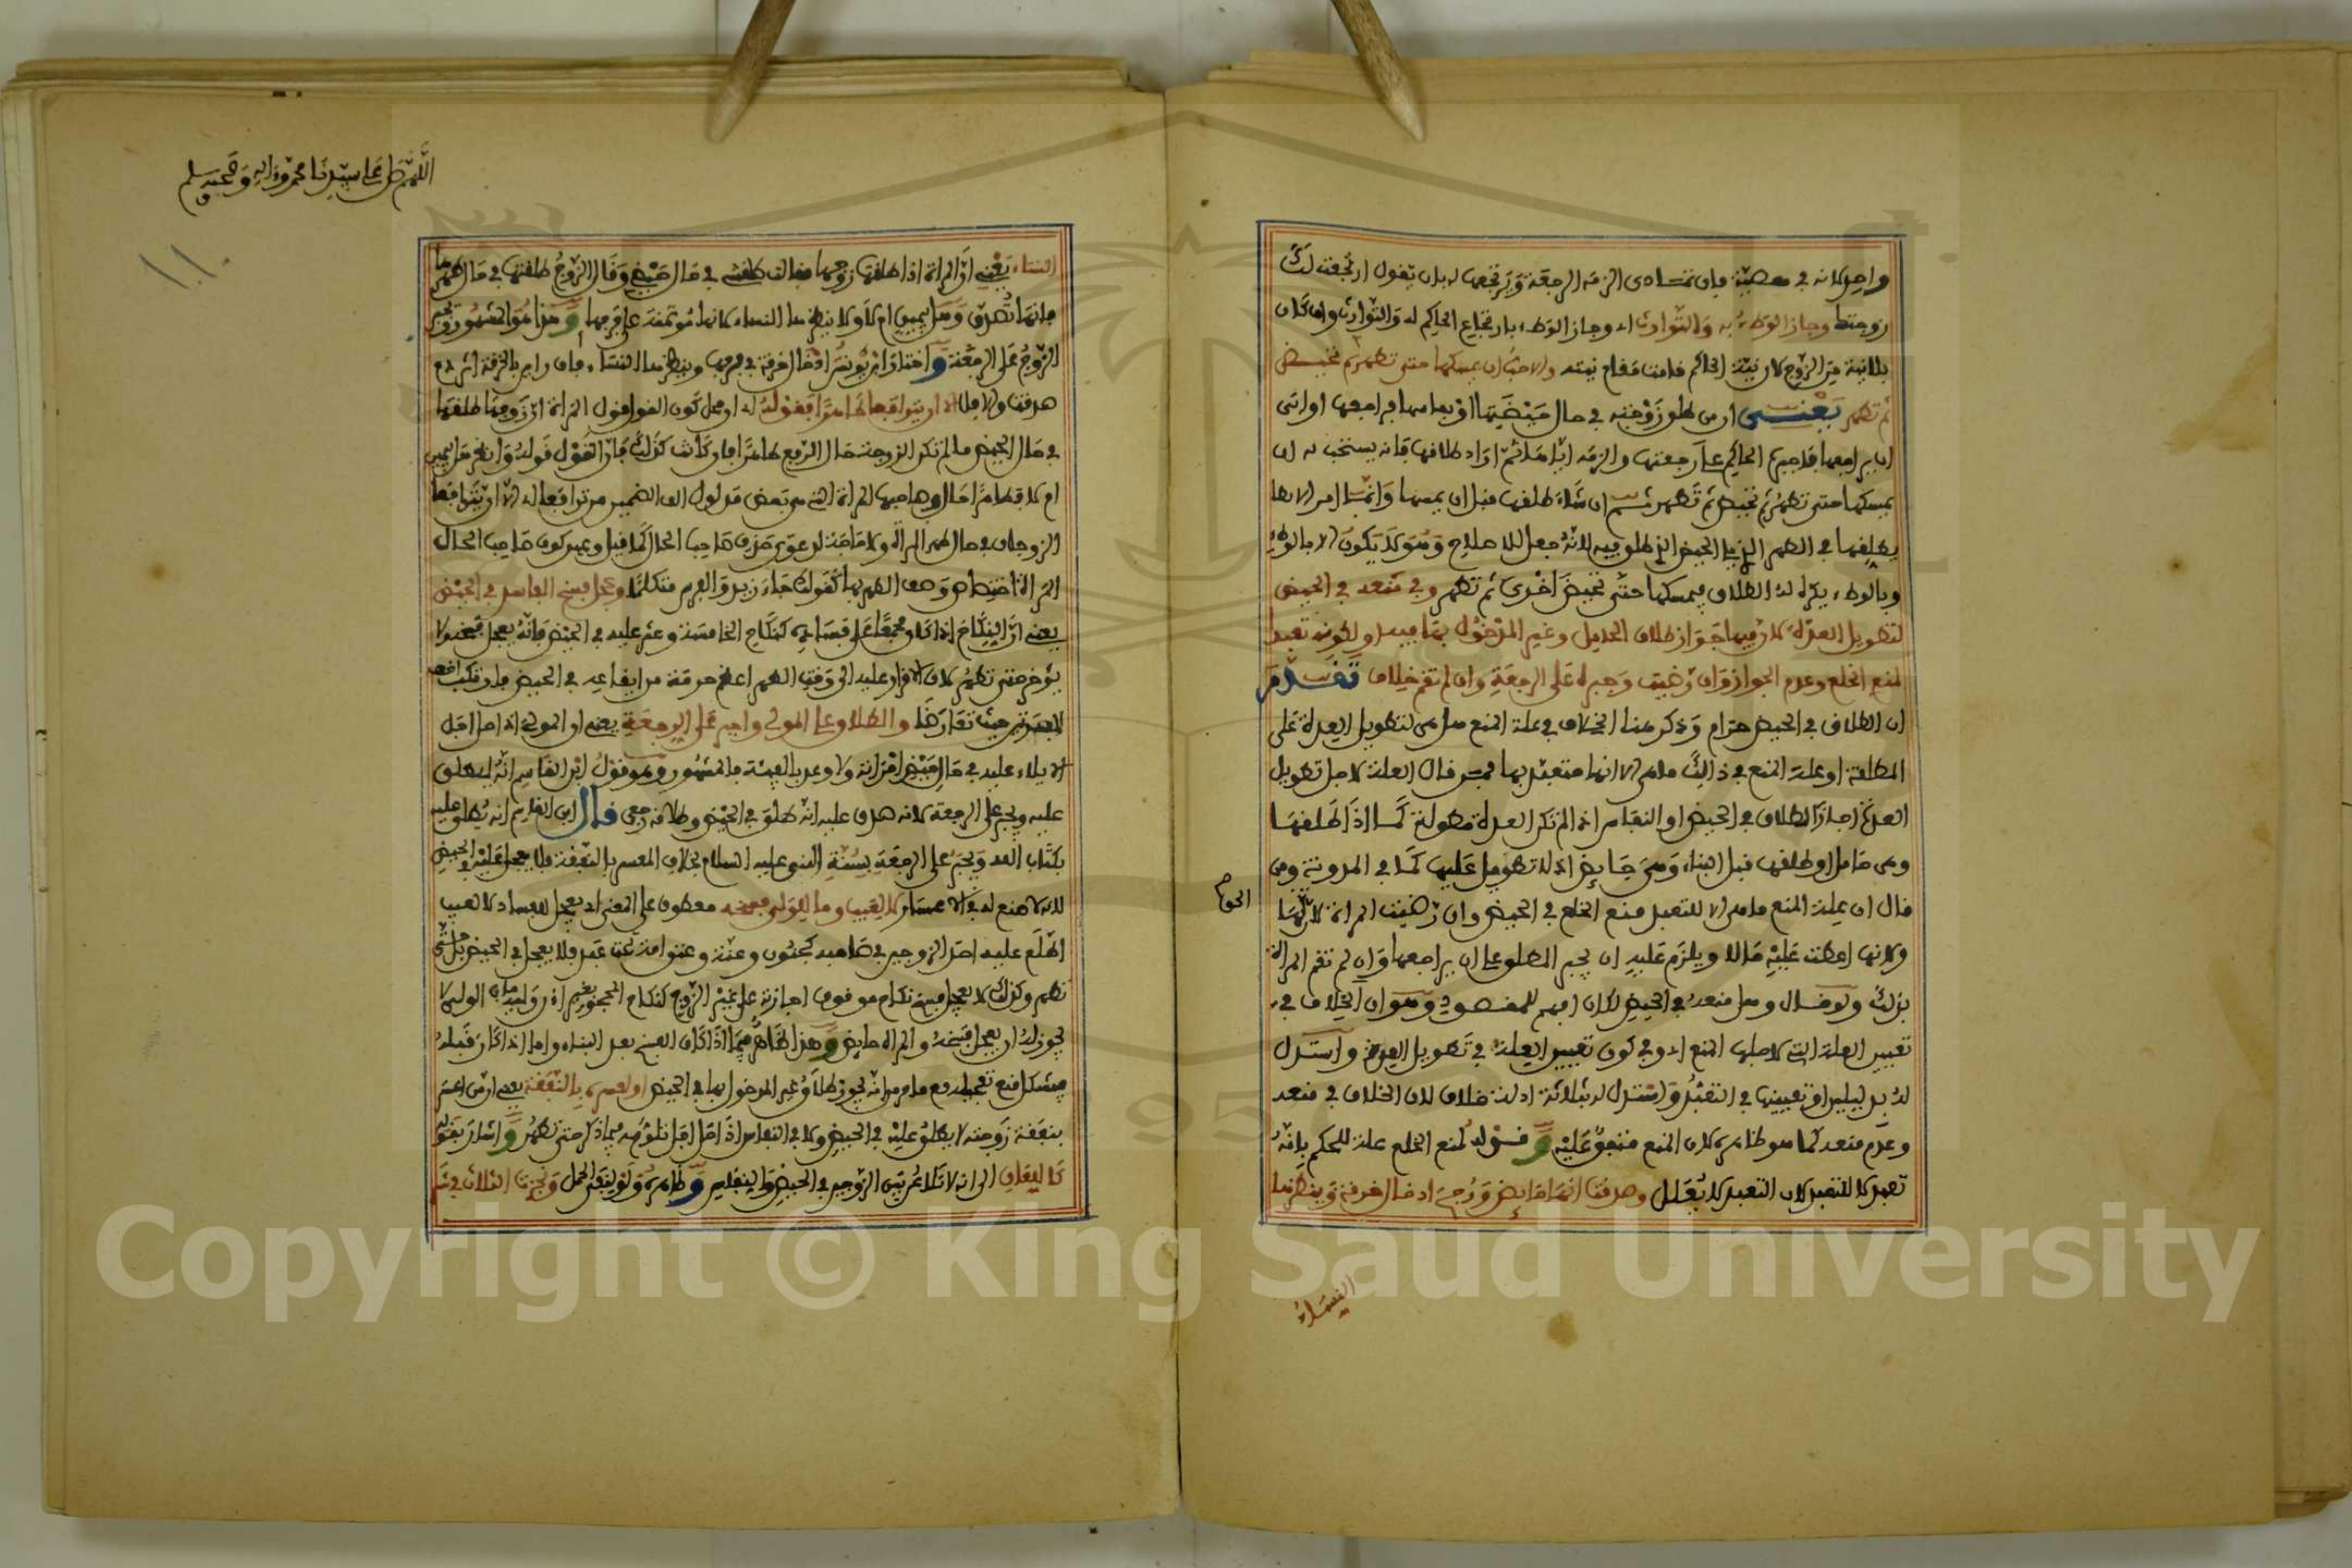 واحد لانه في معصية فان تمادى الزمه الرجعة ويرتجعها له بان يقول ارتجعت لك
زوجتك وجاز الوطء به والتوارث اي وجاز الوطء بارتجاع الحاكم له والتوارث وان كان
بلا نية من الزوج لان نية الحاكم قامت مقام نيته والاحب ان يمسكها حتى تطهر ثم تحيض
ثم تطهر يعني ان من طلق زوجته في حال حيضتها او نفاسها فراجعها او ابى
ان يراجعها فاجبره الحاكم على رجعتها والزمه اياها ثم اراد طلاقها فانه يستحب له ان
يمسكها حتى تطهر ثم تحيض ثم تطهر ثم ان شاء طلقها قبل ان يمسها وانما امر الا
يطلقها في الطهر الذي يلي الحيض الذي طلق فيه لانه جعل للاصلاح وهو لا يكون الا بالوطء
وبالوطء يكره له الطلاق فيمسكها حتى تحيض اخرى ثم تطهر وفي منعه في الحيض
لتطويل العدة لان فيها جواز طلاق الحامل وغير المدخول بها فيه او لكونه تعبدا
لمنع الخلع وعدم الجواز وان رضيت وجبره على الرجعة وان لم تقم خلاف تقدم
ان الطلاق في الحيض حرام وذكر هنا الخلاف في علة المنع هل هي لتطويل العدة على
المطلقة او علة المنع في ذالك ما هي الا انها متعبد بها فمن قال العلة لاجل تطويل
العدة اجاز الطلاق في الحيض او النفاس اذا لم تكن العدة مطولة كما اذا طلقها
وهي حامل او طلقها قبل البناء وهي حايض اذ لا تطويل عليها كما في المدونة ومن
قال ان علة المنع ما هي الا للتعبد منع الخلع في الحيض وان رضيت المراة لانها
ولانها اعطت عليه مالا ويلزم عليه ان يجبر المطلق على ان يراجعها وان لم تقم المراة
بذلك ولو قال وهل منعه في الحيض لكان افهم للمقصود وهو ان الخلاف في
تعيين العلة التي لاجلها المنع اي وفي كون تعيين العلة في تطويل العدة واستدل
له بدليلين او تعيينها في التعبد واستدل له بثلاثة ادلة خلاف لان الخلاف في منعه
وعدم منعه كما هو ظاهره لان المنع متفق عليه و قوله لمنع الخلع علة للحكم بانه
تعبد لا للتعبد لان التعبد لا يعلل وصدقت انها حايض ورجح ادخال خرقة وينظرها
النساء
اللهم صل على سيدنا محمد واله وصحبه وسلم
١١٠
النساء يعني ان المراة اذا طلقها زوجها فقالت طلقني في حال حيضي وقال الزوج طلقتها في حال طهرها
فانها تصدق وهل بيمين ام لا ولا ينظرها النساء لانها مؤتمنة على فرجها و هذا هو المشهور ويجبر
الزوج على الرجعة و اختار ابن يونس ادخال خرقة في فرجها وينظرها النساء فان راين بالخرقة اثر دم
صدقت والا فلا الا ان يترافعا طاهرا فقوله اي ومحل كون القول قول المراة ان زوجها طلقها
في حال الحيض ما لم تكن الزوجة حال الرفع طاهرا فان كانت كذلك فان القول قوله وانظر هل بيمين
الزوجان في حال طهر المراة ولا حاجة لدعوى حذف صاحب الحال كما قيل ويجبر كون صاحب الحال
المراة اختصاص وصف الطهر بها كقولك جاء زيد والفرس متكلما وعجل فسخ الفاسد في الحيض
يعني ان النكاح اذا كان مجمعا على فساده كنكاح الخامسة وعثر عليه في الحيض فانه يعجل فسخه ولا
يؤخر حتى تطهر لان الاقرار عليه الى وقت الطهر اعظم حرمة من ايقاعه في الحيض فارتكب اخف
المفسدتين حيث تعارضا والطلاق على المولي واجبر على الرجعة يعني ان المولي اذا حل اجل
الايلاء عليه في حال حيض امراته ولا وعد بالفيئة فالمشهور وهو قول ابن القاسم انه يطلق
عليه ويجبر على الرجعة لانه صدق عليه انه طلق في الحيض وطلاقه رجعي قال ابن القاسم انه يطلق عليه
بكتاب الله ويجبر على الرجعة بسنة النبي عليه السلام بخلاف المعسر بالنفقة فلا يعجل عليه في الحيض
لانه لا صنع له في الاعسار لا لعيب وما للولي فسخه معطوف على المعنى اي يعجل للفساد لا لعيب
اطلع عليه احد الزوجين في صاحبه كجنون وعنة وعتق امة تحت عبد فلا يعجل في الحيض بل حتى
تطهر وكذلك لا يعجل فسخ نكاح موقوف اجازته على غير الزوج كنكاح المحجور بغير اذن وليه فان الولي لا
يجوز له ان يعجل فسخه والمراة حايض و هذا ظاهر فيما اذا كان الفسخ بعد البناء واما اذا كان قبله
فيشكل منع تعجيله مع ما مر من انه يجوز طلاق غير المدخول بها في الحيض او لعسره بالنفقة يعني ان من اعسر
بنفقة زوجته لا يطلق عليه في الحيض ولا في النفاس اذا حل اجل تلومه فيما ذكر حتى تطهر و اشار بقوله
كاللعان الى انه لا تلاعن بين الزوجين في الحيض والنفاس و ظاهره ولو لنفي الحمل ونجزت الثلاث في شر